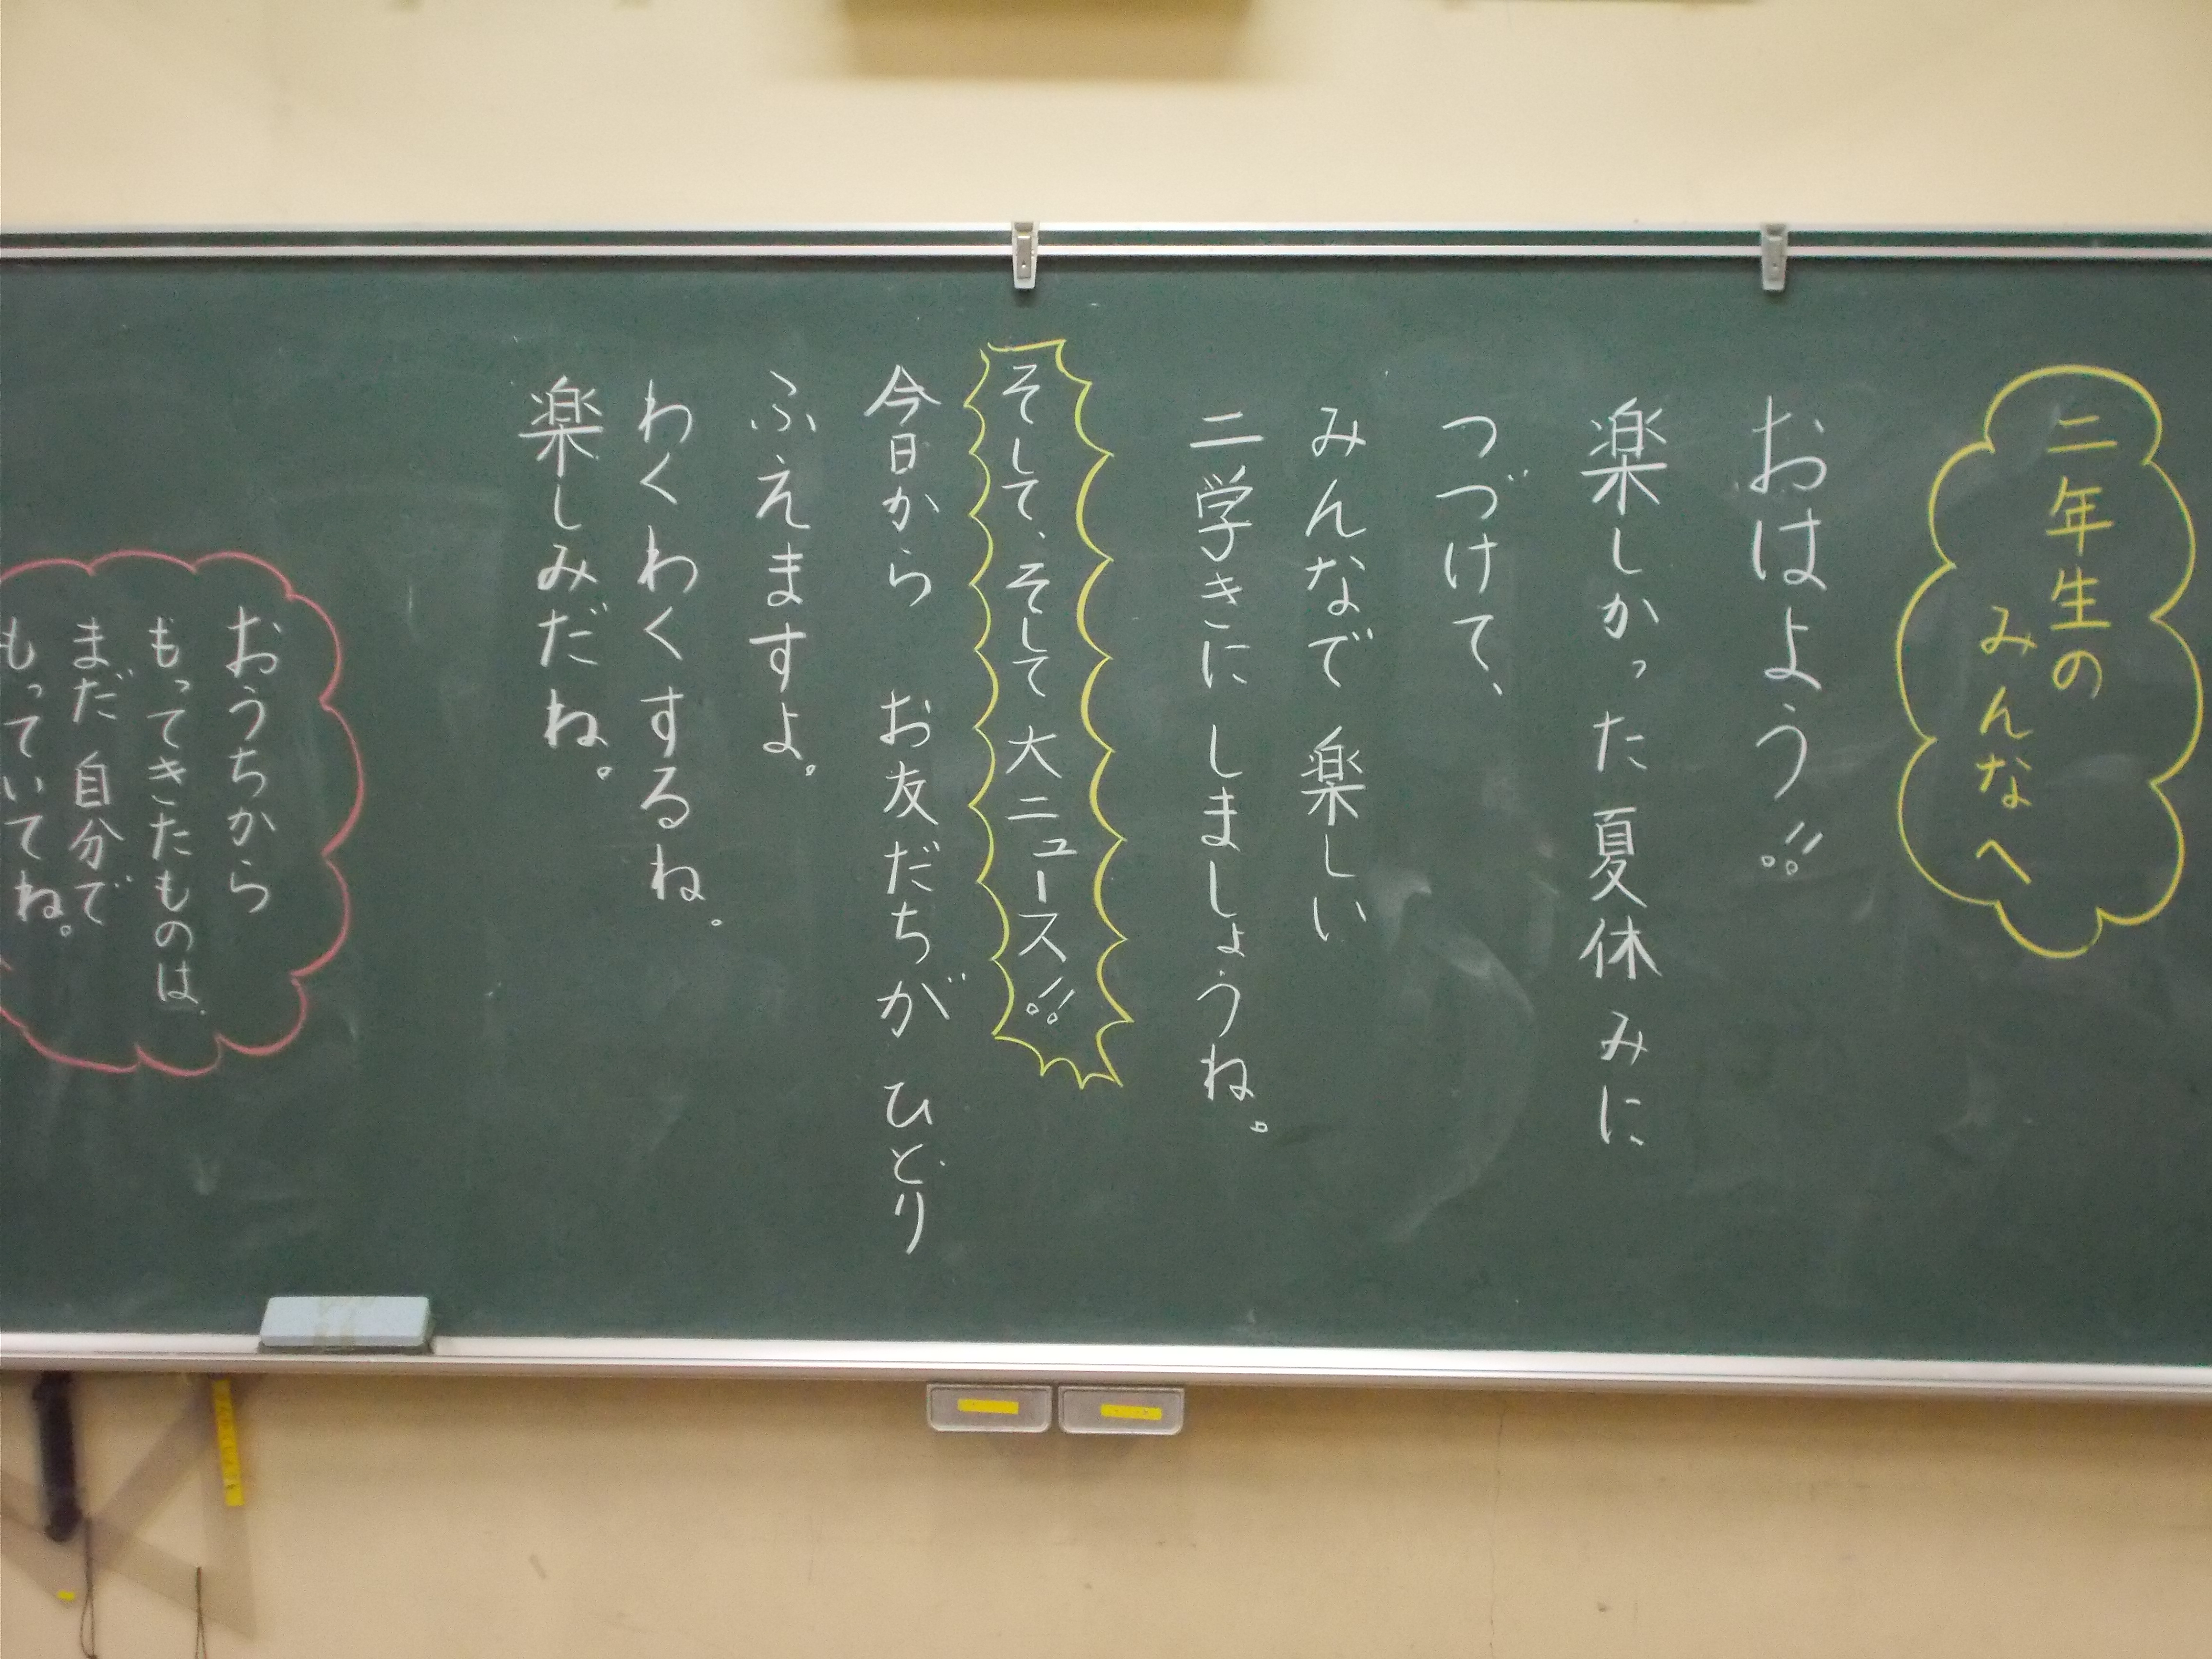 二年生の
みんなへ
おはよう!!
楽しかった夏休みに
つづけて、
みんなで 楽しい
二学きに しましょうね。
そして、そして 大ニュース!!
今日から お友だちが ひとり
ふえますよ。
わくわくするね。
楽しみだね。
おうちから
もってきたものは、
まだ 自分で
もっていてね。